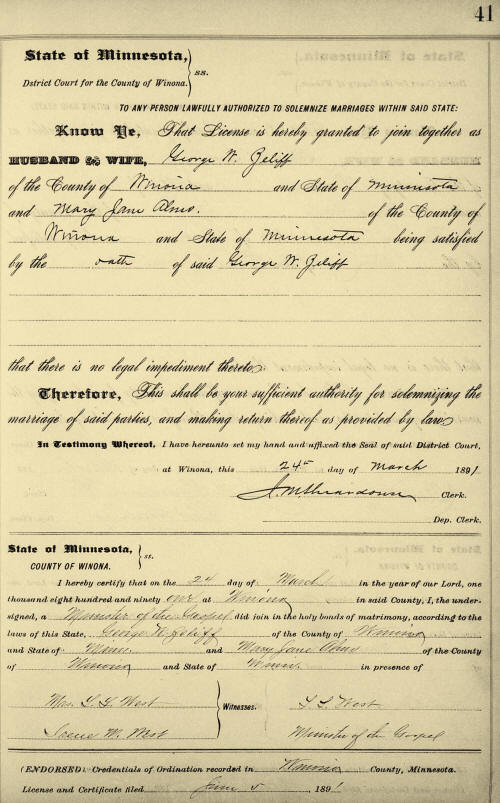 41
State of Minnesota, } ss.
District Court for the County of Winona.
TO ANY PERSON LAWFULLY AUTHORIZED TO SOLEMNIZE MARRIAGES WITHIN SAID STATE:
Know Ye, That License is hereby granted to join together as
HUSBAND & WIFE, George W. Zeliff
of the County of Winona and State of Minnesota
and Mary Jane of the County of
Winona and State of Minnesota being satisfied
by the oath of said George W. Zeliff
that there is no legal impediment thereto
Therefore, This shall be your sufficient authority for solemnizing the
marriage of said parties, and making return thereof as provided by law
In Testimony Whereof, I have hereunto set my hand and affixed the Seal of said District Court,
at Winona, this 24th day of March 1891.
J. M. Sheardown Clerk.
Dep. Clerk.
State of Minnesota, } ss.
COUNTY OF WINONA.
I hereby certify that on the 24 day of March in the year of our Lord, one
thousand eight hundred and ninety one at Winona in said County, I, the under-
signed, a Minister of the Gospel did join in the holy bonds of matrimony, according to the
laws of this State, George W. Zeliff of the County of Winona
and State of Minn. and Mary Jane of the County
of Winona and State of Minn. in presence of
Mrs. L. G. West } Witnesses. { L L West
M. West Minister of the Gospel
(ENDORSED) Credentials of Ordination recorded in Winona County, Minnesota.
License and Certificate filed June 5, 1891